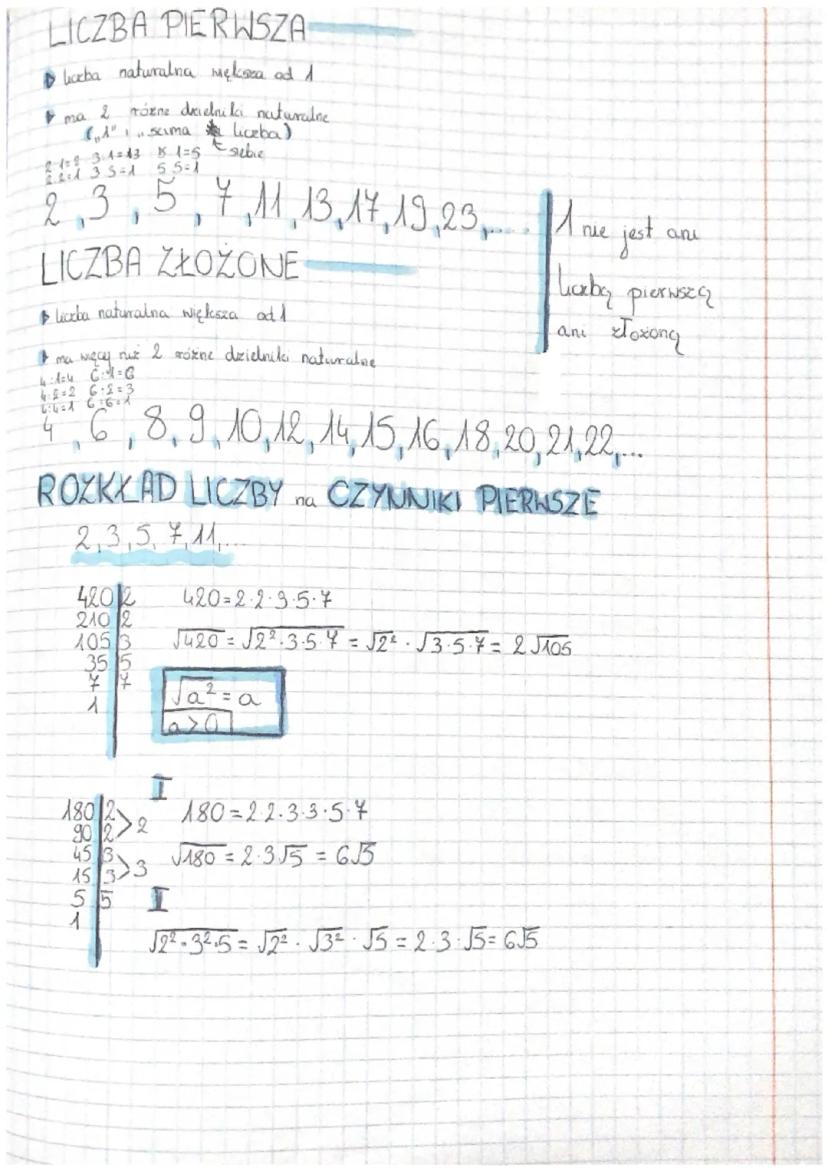 LICZBA PIERWSZA
liczba naturalna większa od 1
ma 2 różne dzielniki naturalne
("1" i "sama liczba)
siebie
2·1=2 3·1=13 5·1=5
2·2=1 3·3=1 5·5=1
2, 3, 5, 7, 11, 13, 17, 19, 23, ....
1 nie jest ani
liczbą pierwszą
ani złożoną
LICZBA ZŁOŻONE
liczba naturalna większa od 1
ma więcej niż 2 różne dzielniki naturalne
4:1=4 6:1=6
4:2=2 6:2=3
4:4=1 6:6=1
4, 6, 8, 9, 10, 12, 14, 15, 16, 18, 20, 21, 22, ...
ROZKŁAD LICZBY na CZYNNIKI PIERWSZE
2, 3, 5, 7, 11, ...
420|2 420=2·2·3·5·7
210|2
105|3 √420 = √2²·3·5·7 = √2² · √3·5·7 = 2√105
35|5
7|7 √a² = a
1 a>0
I
180|2 >2 180=2·2·3·3·5·7
90|2
45|3 >3 √180 = 2·3√5 = 6√5
15|3
5|5 I
1
√2²·3²·5 = √2² · √3² · √5 = 2·3·√5 = 6√5